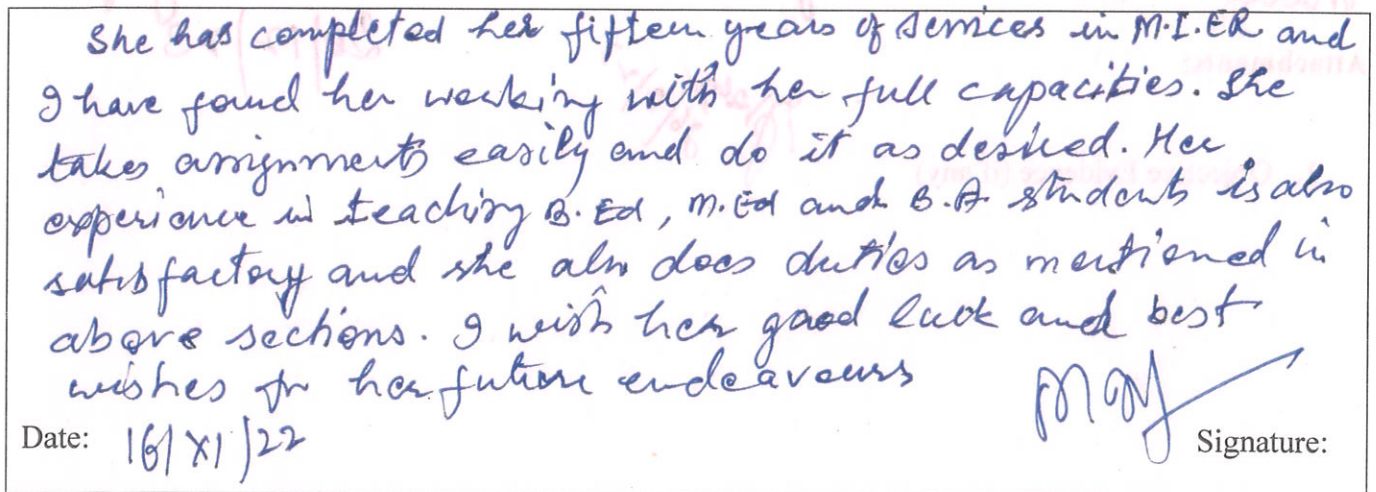 She has completed her fifteen years of services in M.I.ER and
I have found her working with her full capacities. She
takes assignments easily and do it as desired. Her
experience in teaching B.Ed, M.Ed and B.A. students is also
satisfactory and she also does duties as mentioned in
above sections. I wish her good luck and best
wishes for her future endeavours
Date: 16/XI/22
Signature: